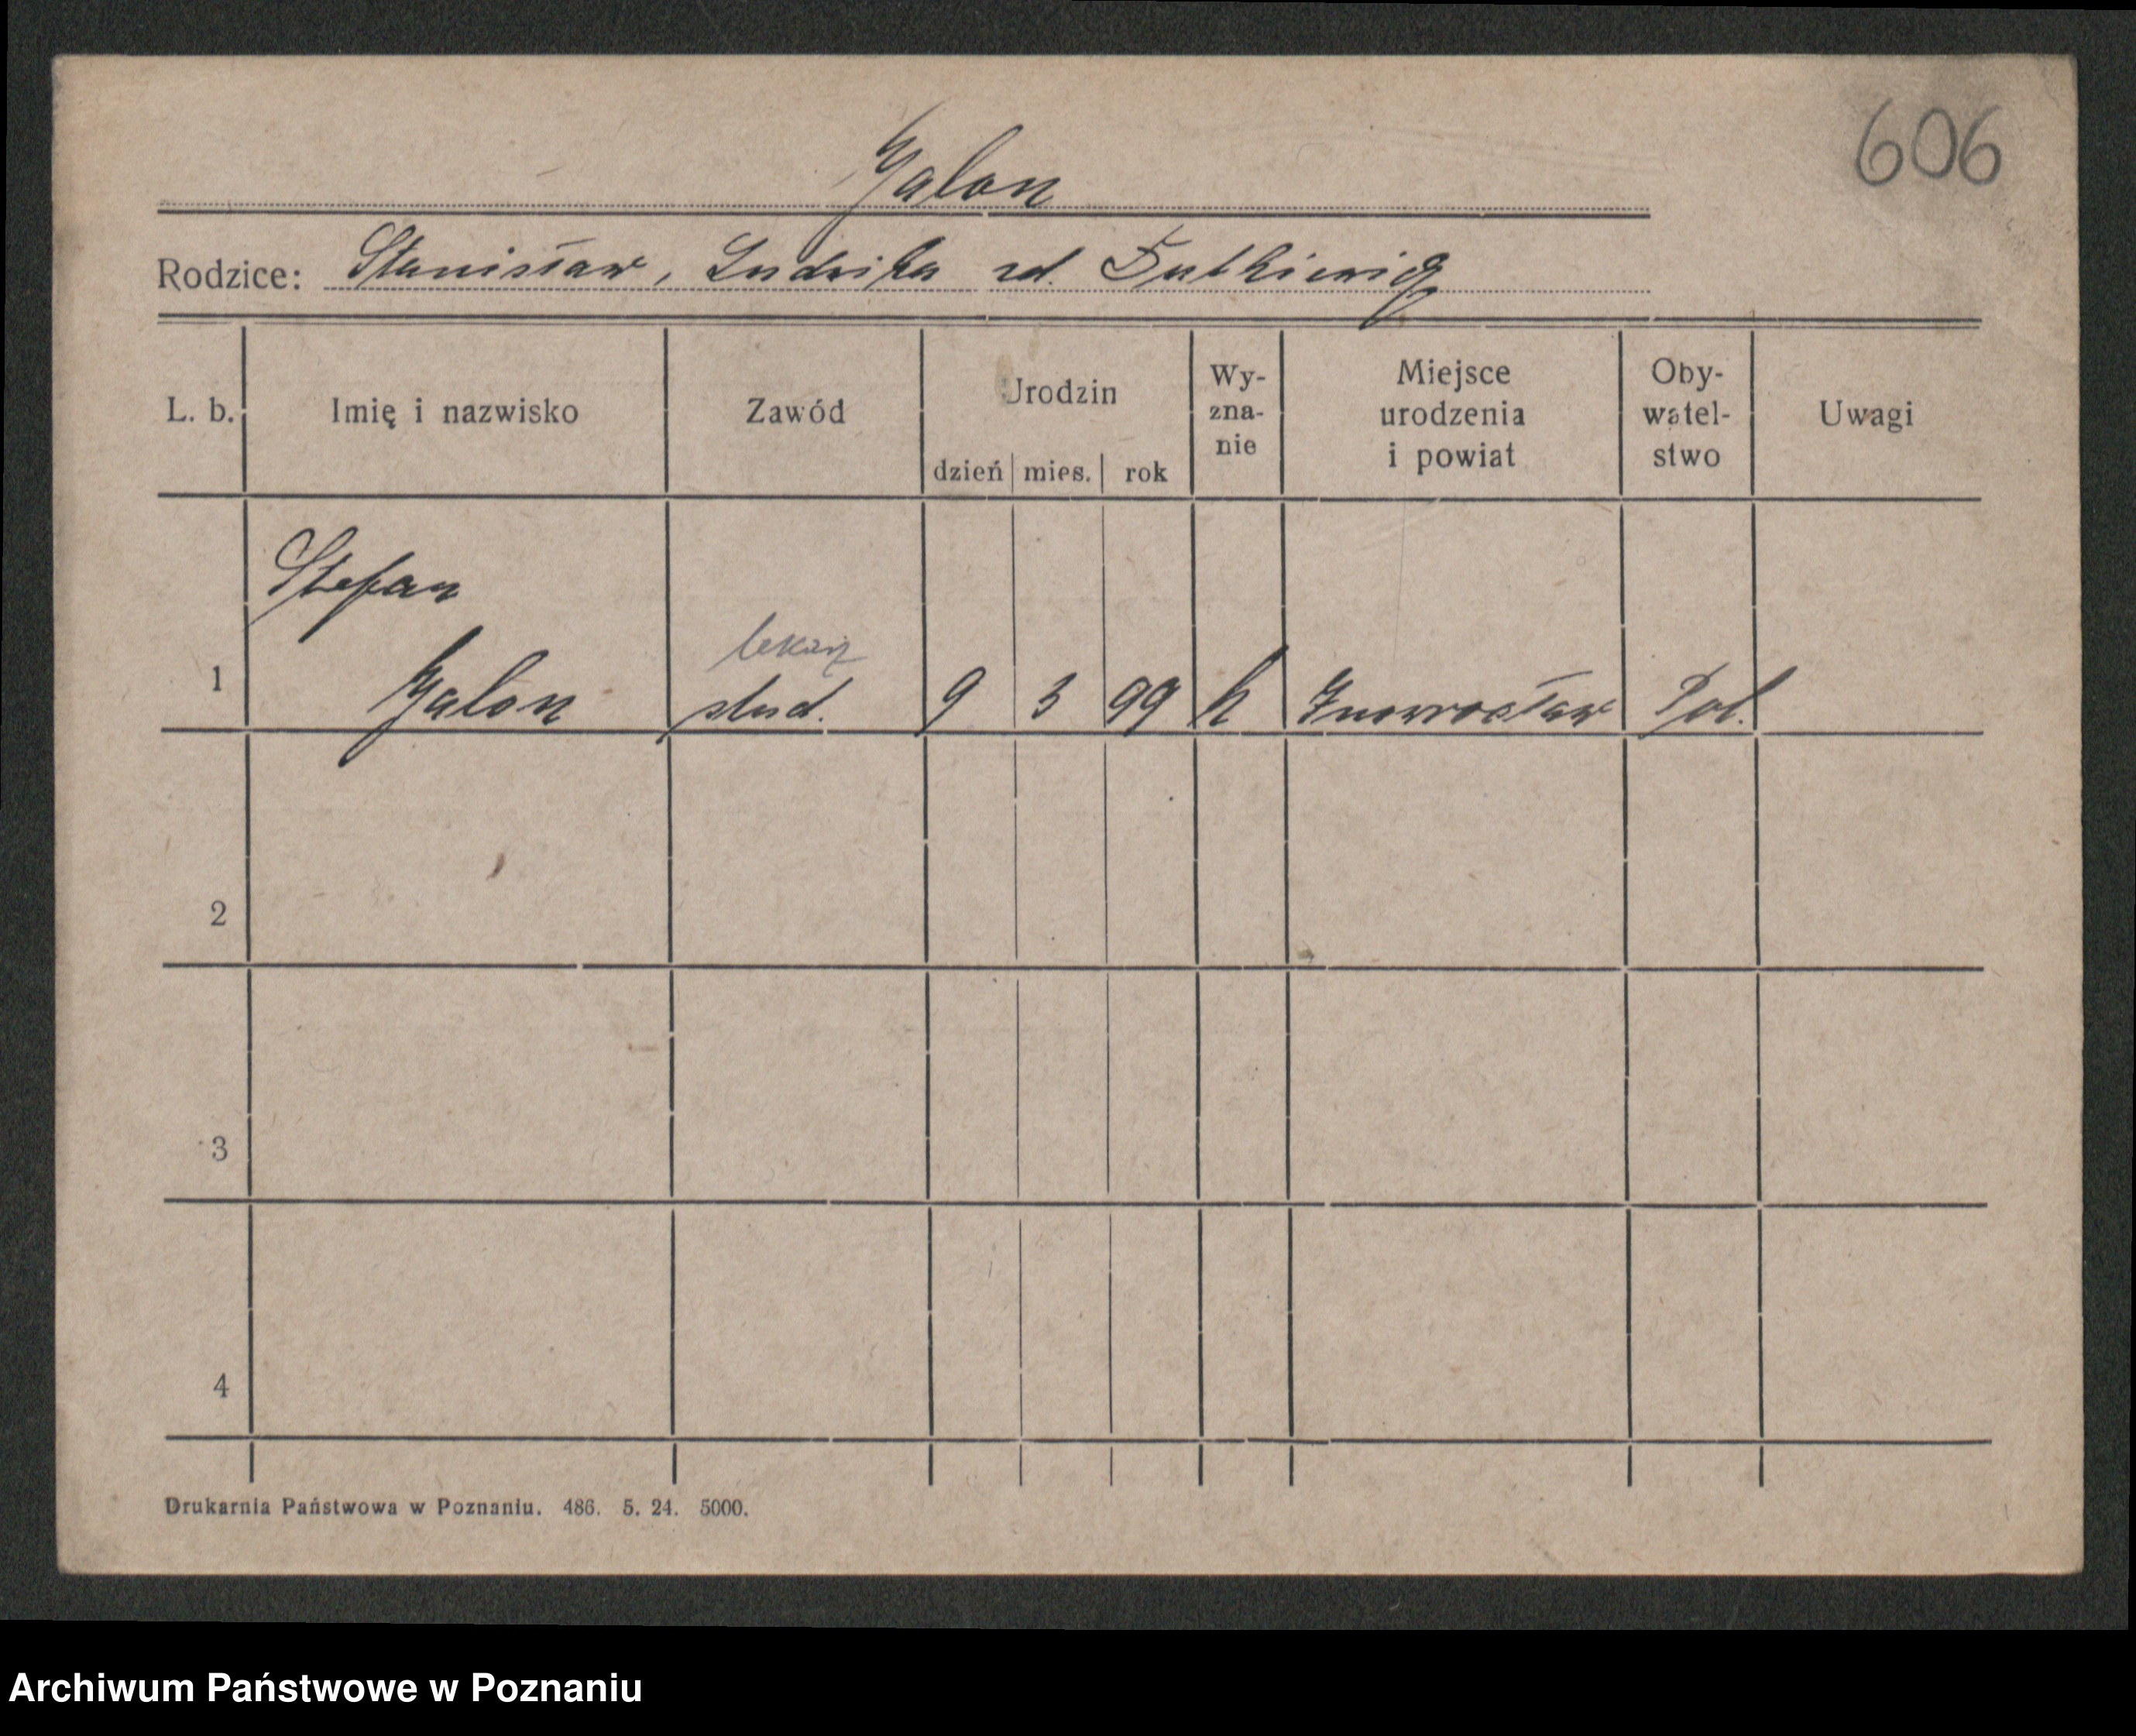 606
Galon
Rodzice: Stanisław, Ludwika zd. Dutkiewicz
L. b. Imię i nazwisko Zawód Urodzin Wy- Miejsce Oby- Uwagi
zna- urodzenia watel-
nie i powiat stwo
dzień mies. rok
Stefan
lekarz
1 Galon stud. 9 3 99 k Inowrocław Pol.
2
3
4
Drukarnia Państwowa w Poznaniu. 486. 5. 24. 5000.
Archiwum Państwowe w Poznaniu